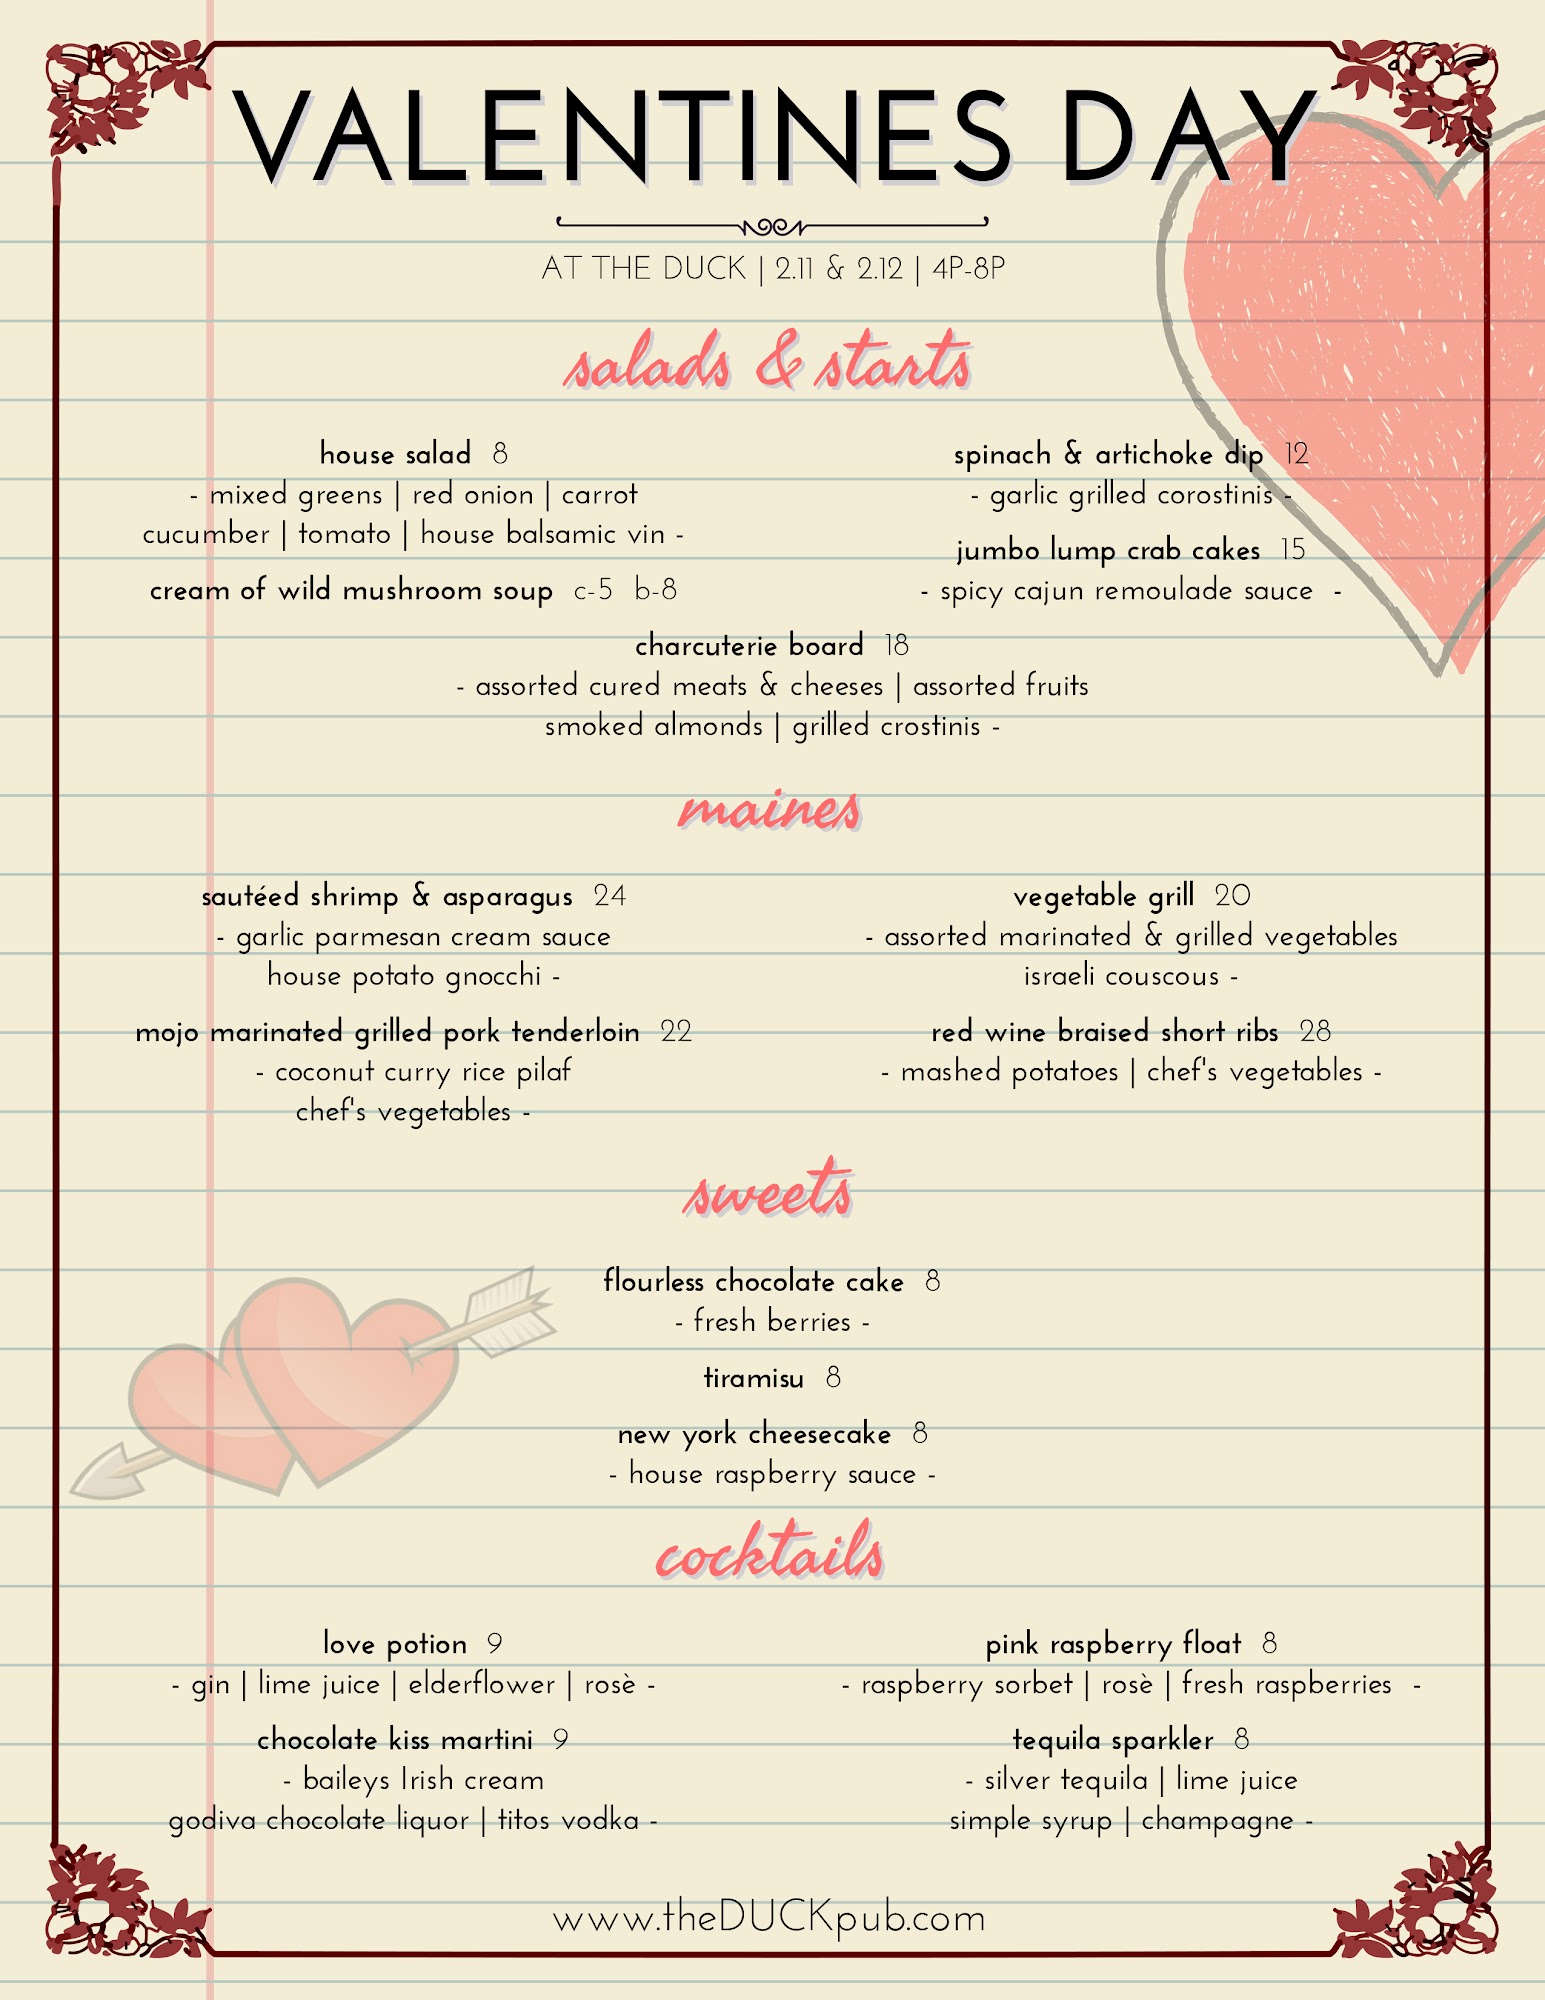 VALENTINES DAY
AT THE DUCK | 2.11 & 2.12 | 4P-8P
salads & starts
house salad 8
- mixed greens | red onion | carrot
cucumber | tomato | house balsamic vin -
cream of wild mushroom soup c-5 b-8
spinach & artichoke dip 12
- garlic grilled corostinis -
jumbo lump crab cakes 15
- spicy cajun remoulade sauce -
charcuterie board 18
- assorted cured meats & cheeses | assorted fruits
smoked almonds | grilled crostinis -
maines
sautéed shrimp & asparagus 24
- garlic parmesan cream sauce
house potato gnocchi -
mojo marinated grilled pork tenderloin 22
- coconut curry rice pilaf
chef's vegetables -
vegetable grill 20
- assorted marinated & grilled vegetables
israeli couscous -
red wine braised short ribs 28
- mashed potatoes | chef's vegetables -
sweets
flourless chocolate cake 8
- fresh berries -
tiramisu 8
new york cheesecake 8
- house raspberry sauce -
cocktails
love potion 9
- gin | lime juice | elderflower | rosè -
chocolate kiss martini 9
- baileys Irish cream
godiva chocolate liquor | titos vodka -
pink raspberry float 8
- raspberry sorbet | rosè | fresh raspberries -
tequila sparkler 8
- silver tequila | lime juice
simple syrup | champagne -
www.theDUCKpub.com